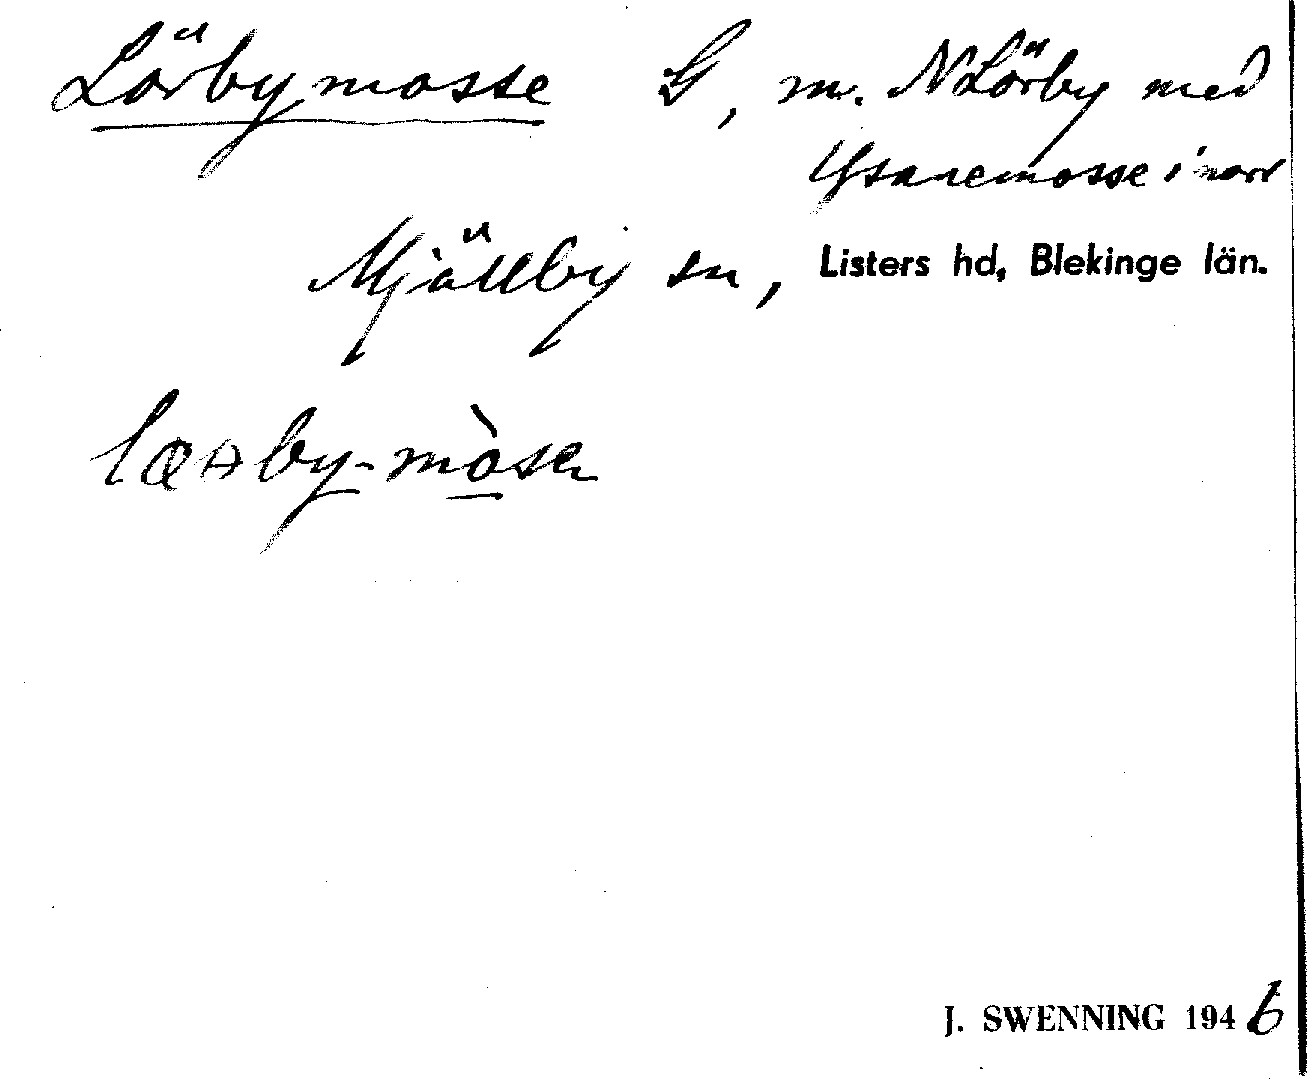 Lörbymosse G, m. N Lörby med
Ysanemosse i norr
Mjällby sn, Listers hd, Blekinge län.
lœʀby-mòsɐ
J. SWENNING 1946